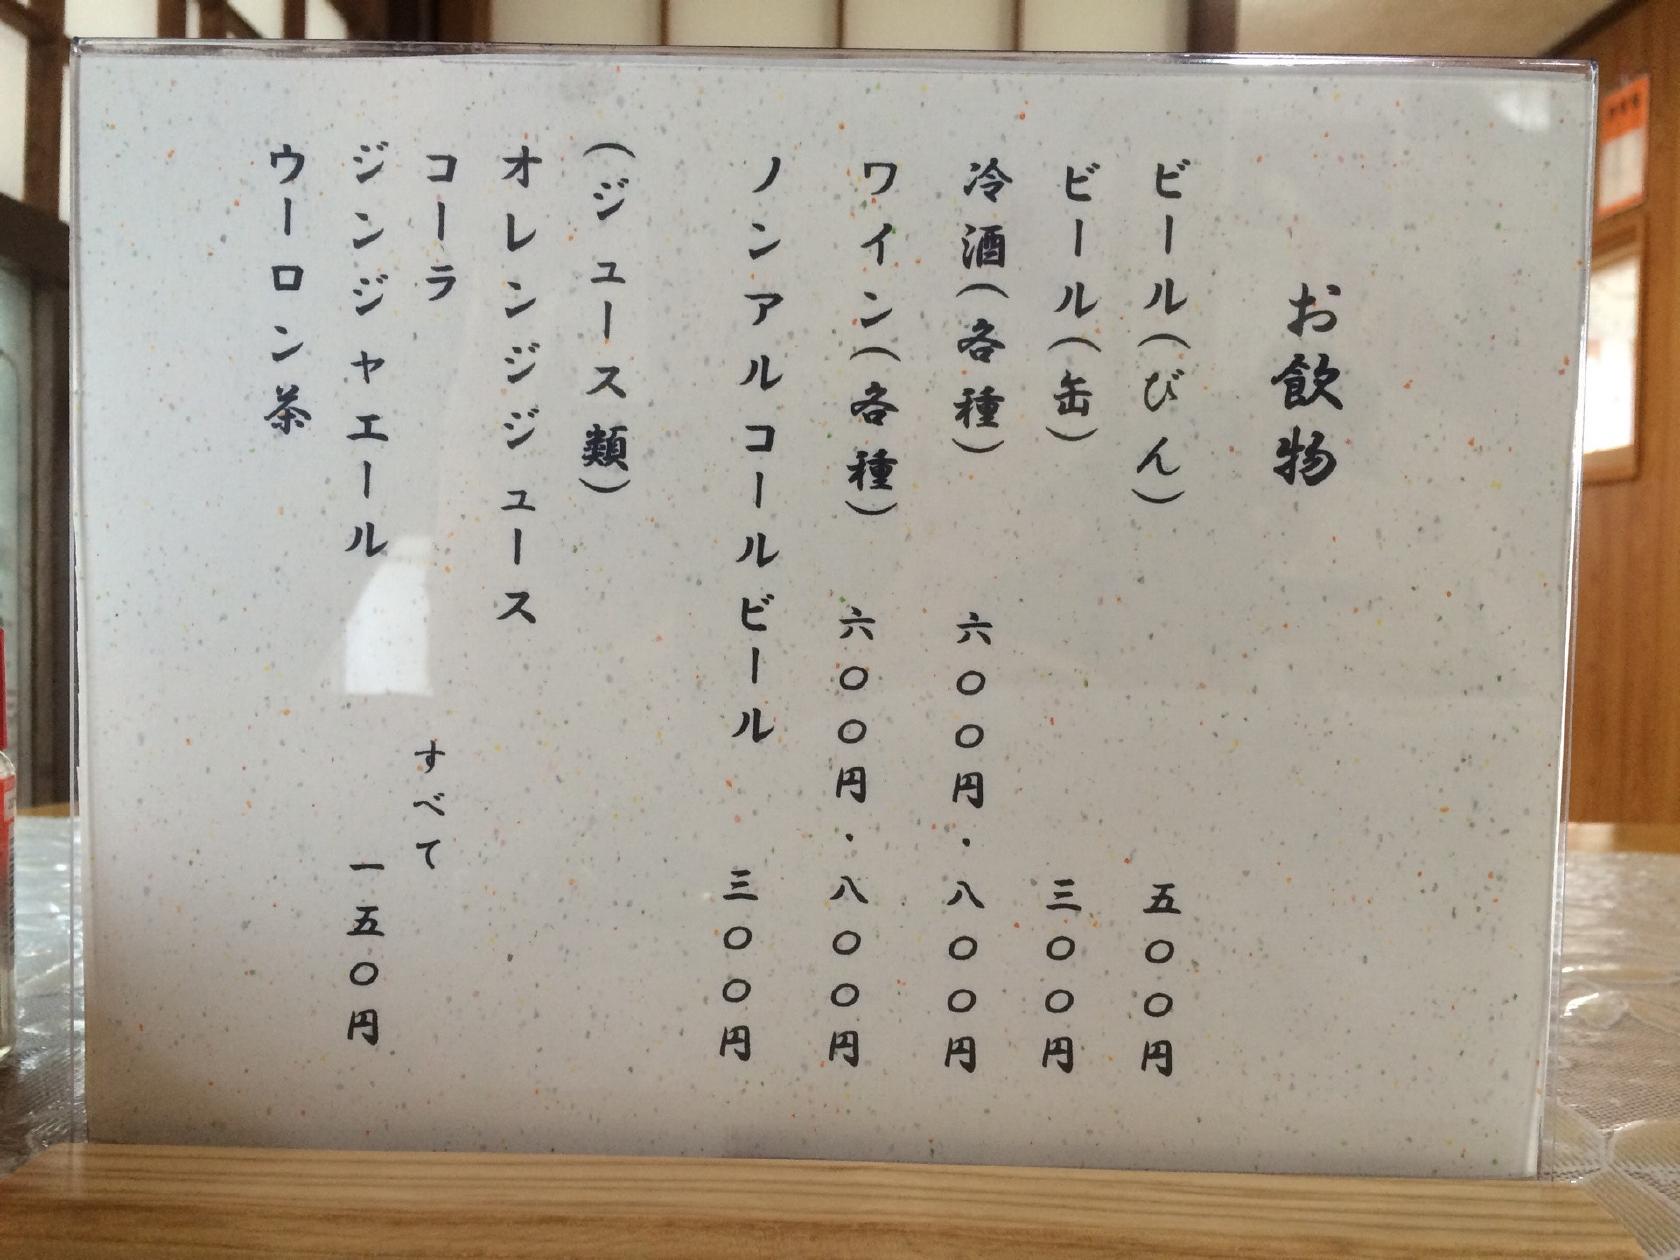 お飲物
ビール(びん) 五〇〇円
ビール(缶) 三〇〇円
冷酒(各種) 六〇〇円・八〇〇円
ワイン(各種) 六〇〇円・八〇〇円
ノンアルコールビール 三〇〇円
(ジュース類)
オレンジジュース
コーラ すべて
ジンジャエール 一五〇円
ウーロン茶